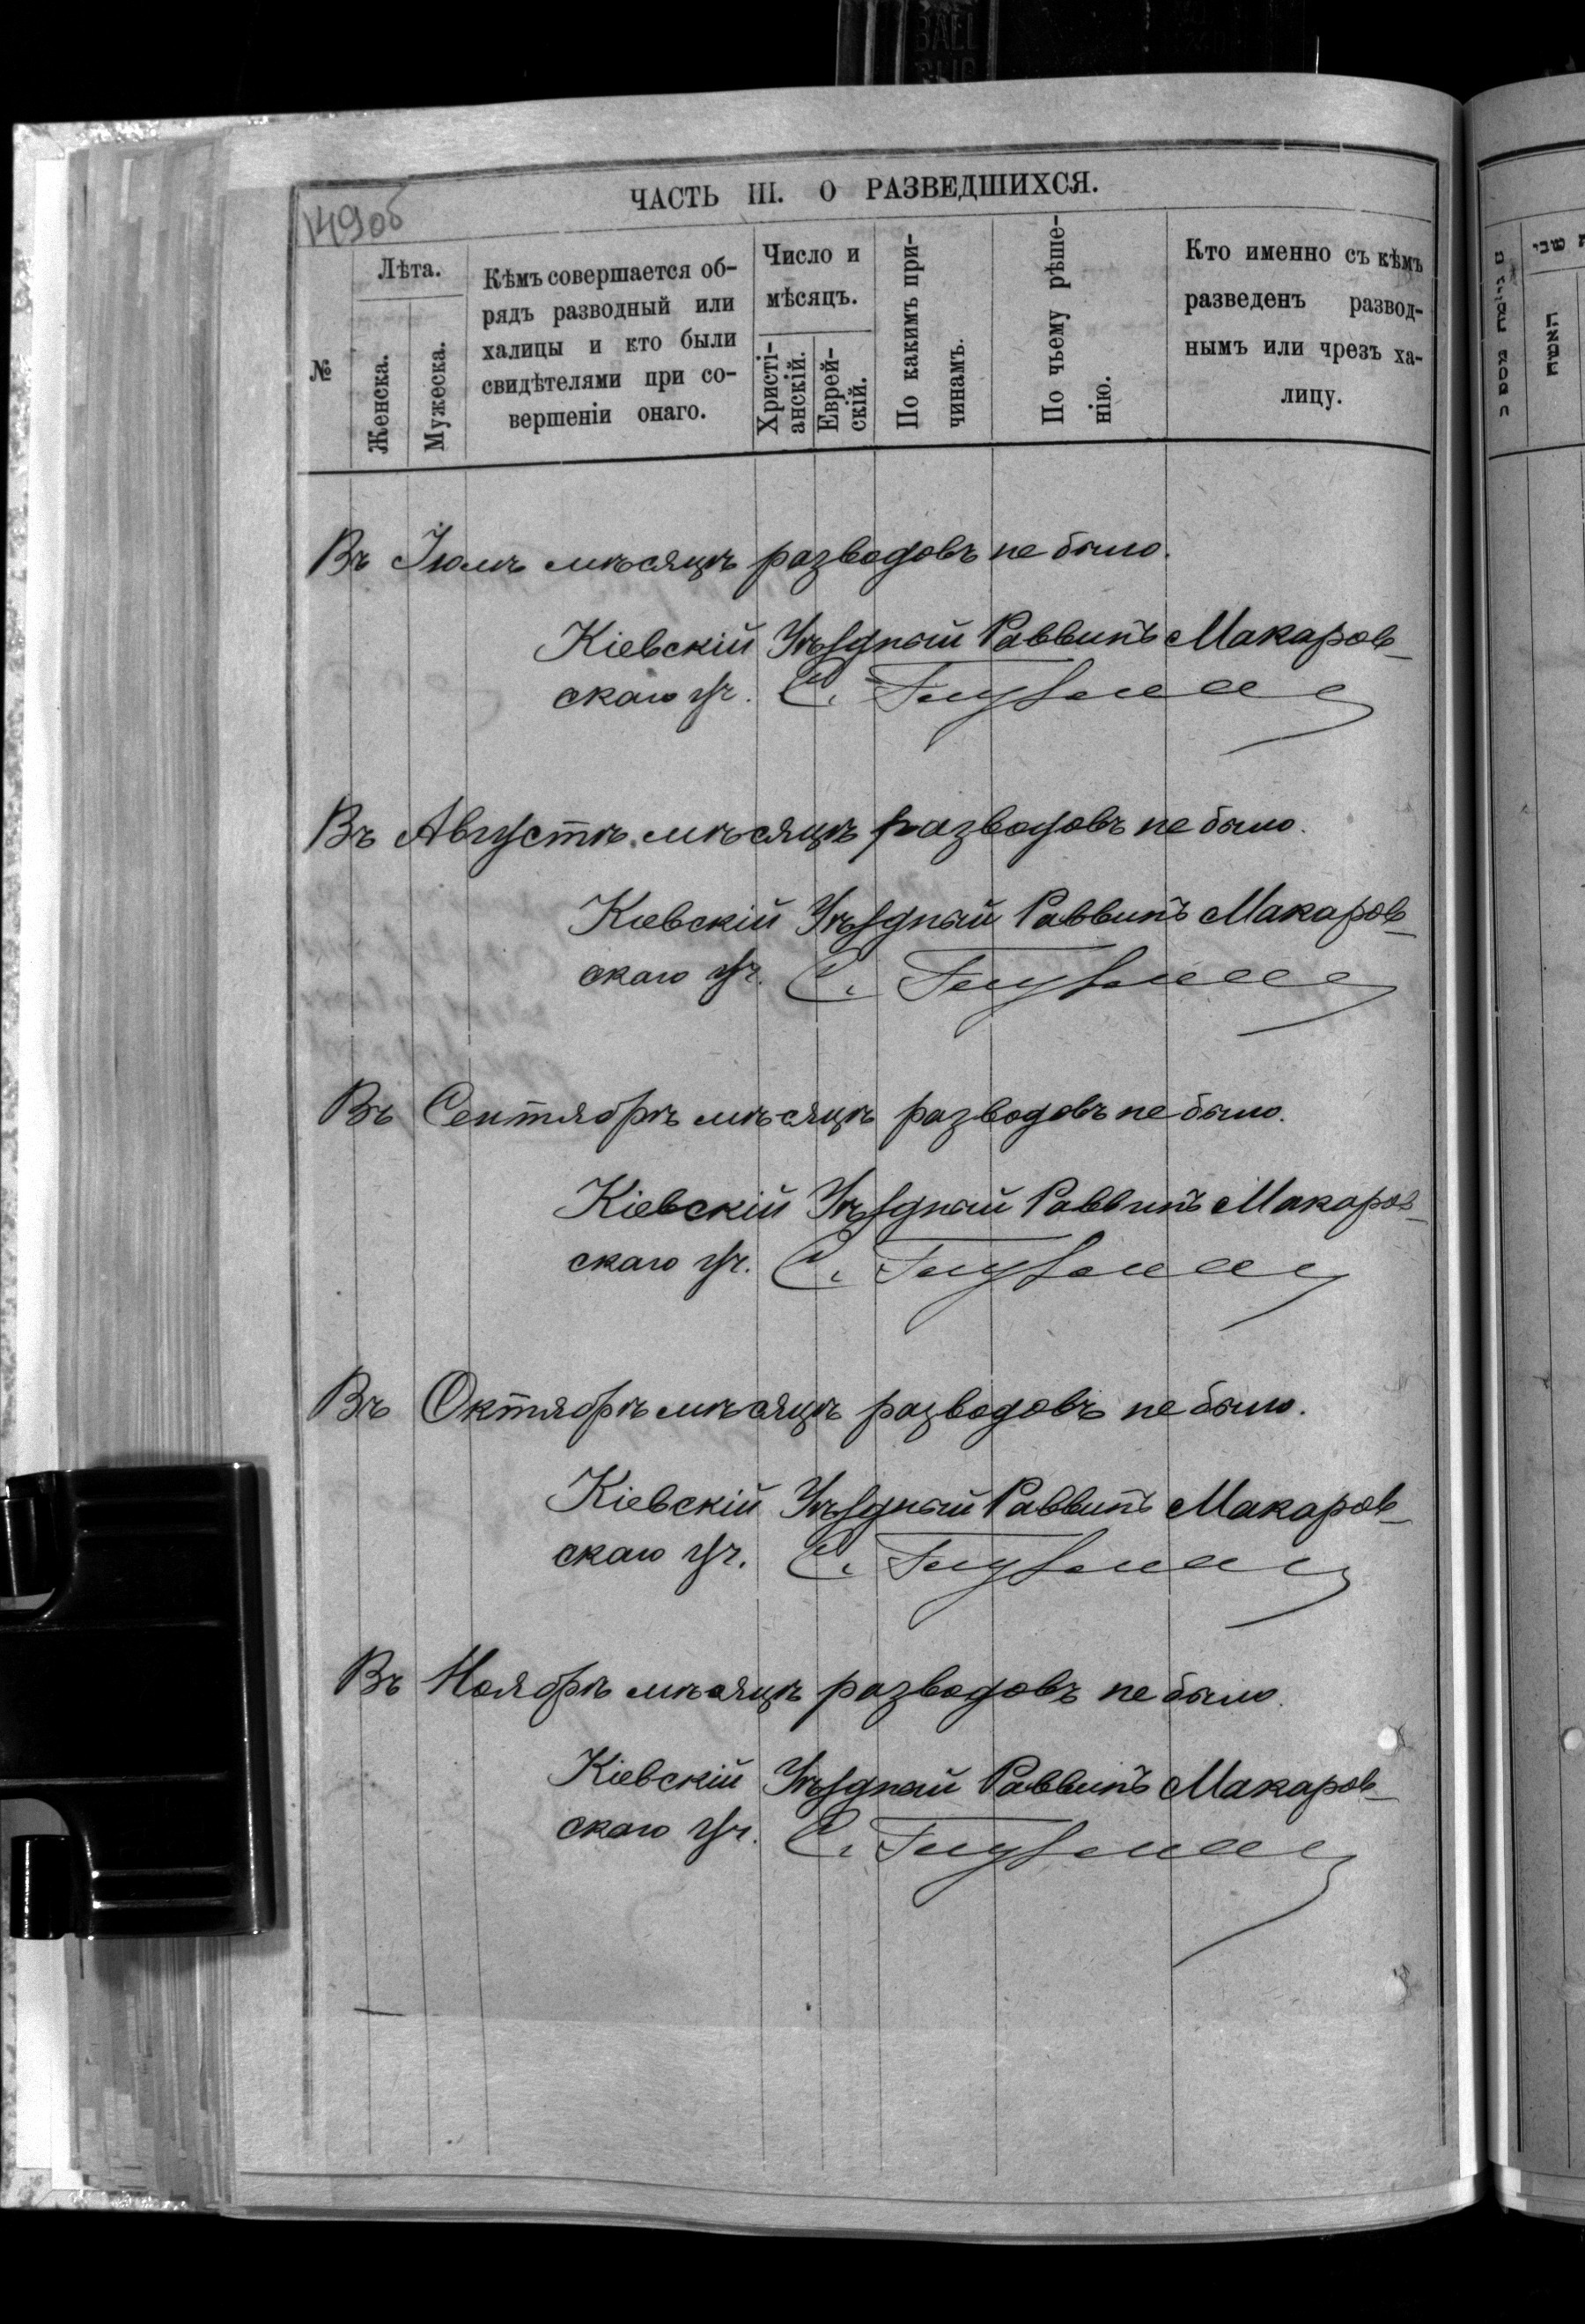 149об
ЧАСТЬ III. О РАЗВЕДШИХСЯ.
№
Лѣта.
Женска.
Мужеска.
Кѣмъ совершается об-
рядъ разводный или
халицы и кто были
свидѣтелями при со-
вершеніи онаго.
Число и
мѣсяцъ.
Христі-
анскій.
Еврей-
скій.
По какимъ при-
чинамъ.
По чьему рѣше-
нію.
Кто именно съ кѣмъ
разведенъ развод-
нымъ или чрезъ ха-
лицу.
Въ Іюлѣ мѣсяцѣ разводовъ не было.
Кіевскій Уѣздный Раввинъ Макаров-
скаго уч. С.
Въ Августѣ мѣсяцѣ разводовъ не было.
Кіевскій Уѣздный Раввинъ Макаров-
скаго уч. С.
Въ Сентябрѣ мѣсяцѣ разводовъ не было.
Кіевскій Уѣздный Раввинъ Макаров-
скаго уч. С.
Въ Октябрѣ мѣсяцѣ разводовъ не было.
Кіевскій Уѣздный Раввинъ Макаров-
скаго уч. С.
Въ Ноябрѣ мѣсяцѣ разводовъ не было.
Кіевскій Уѣздный Раввинъ Макаров-
скаго уч. С.
האשה